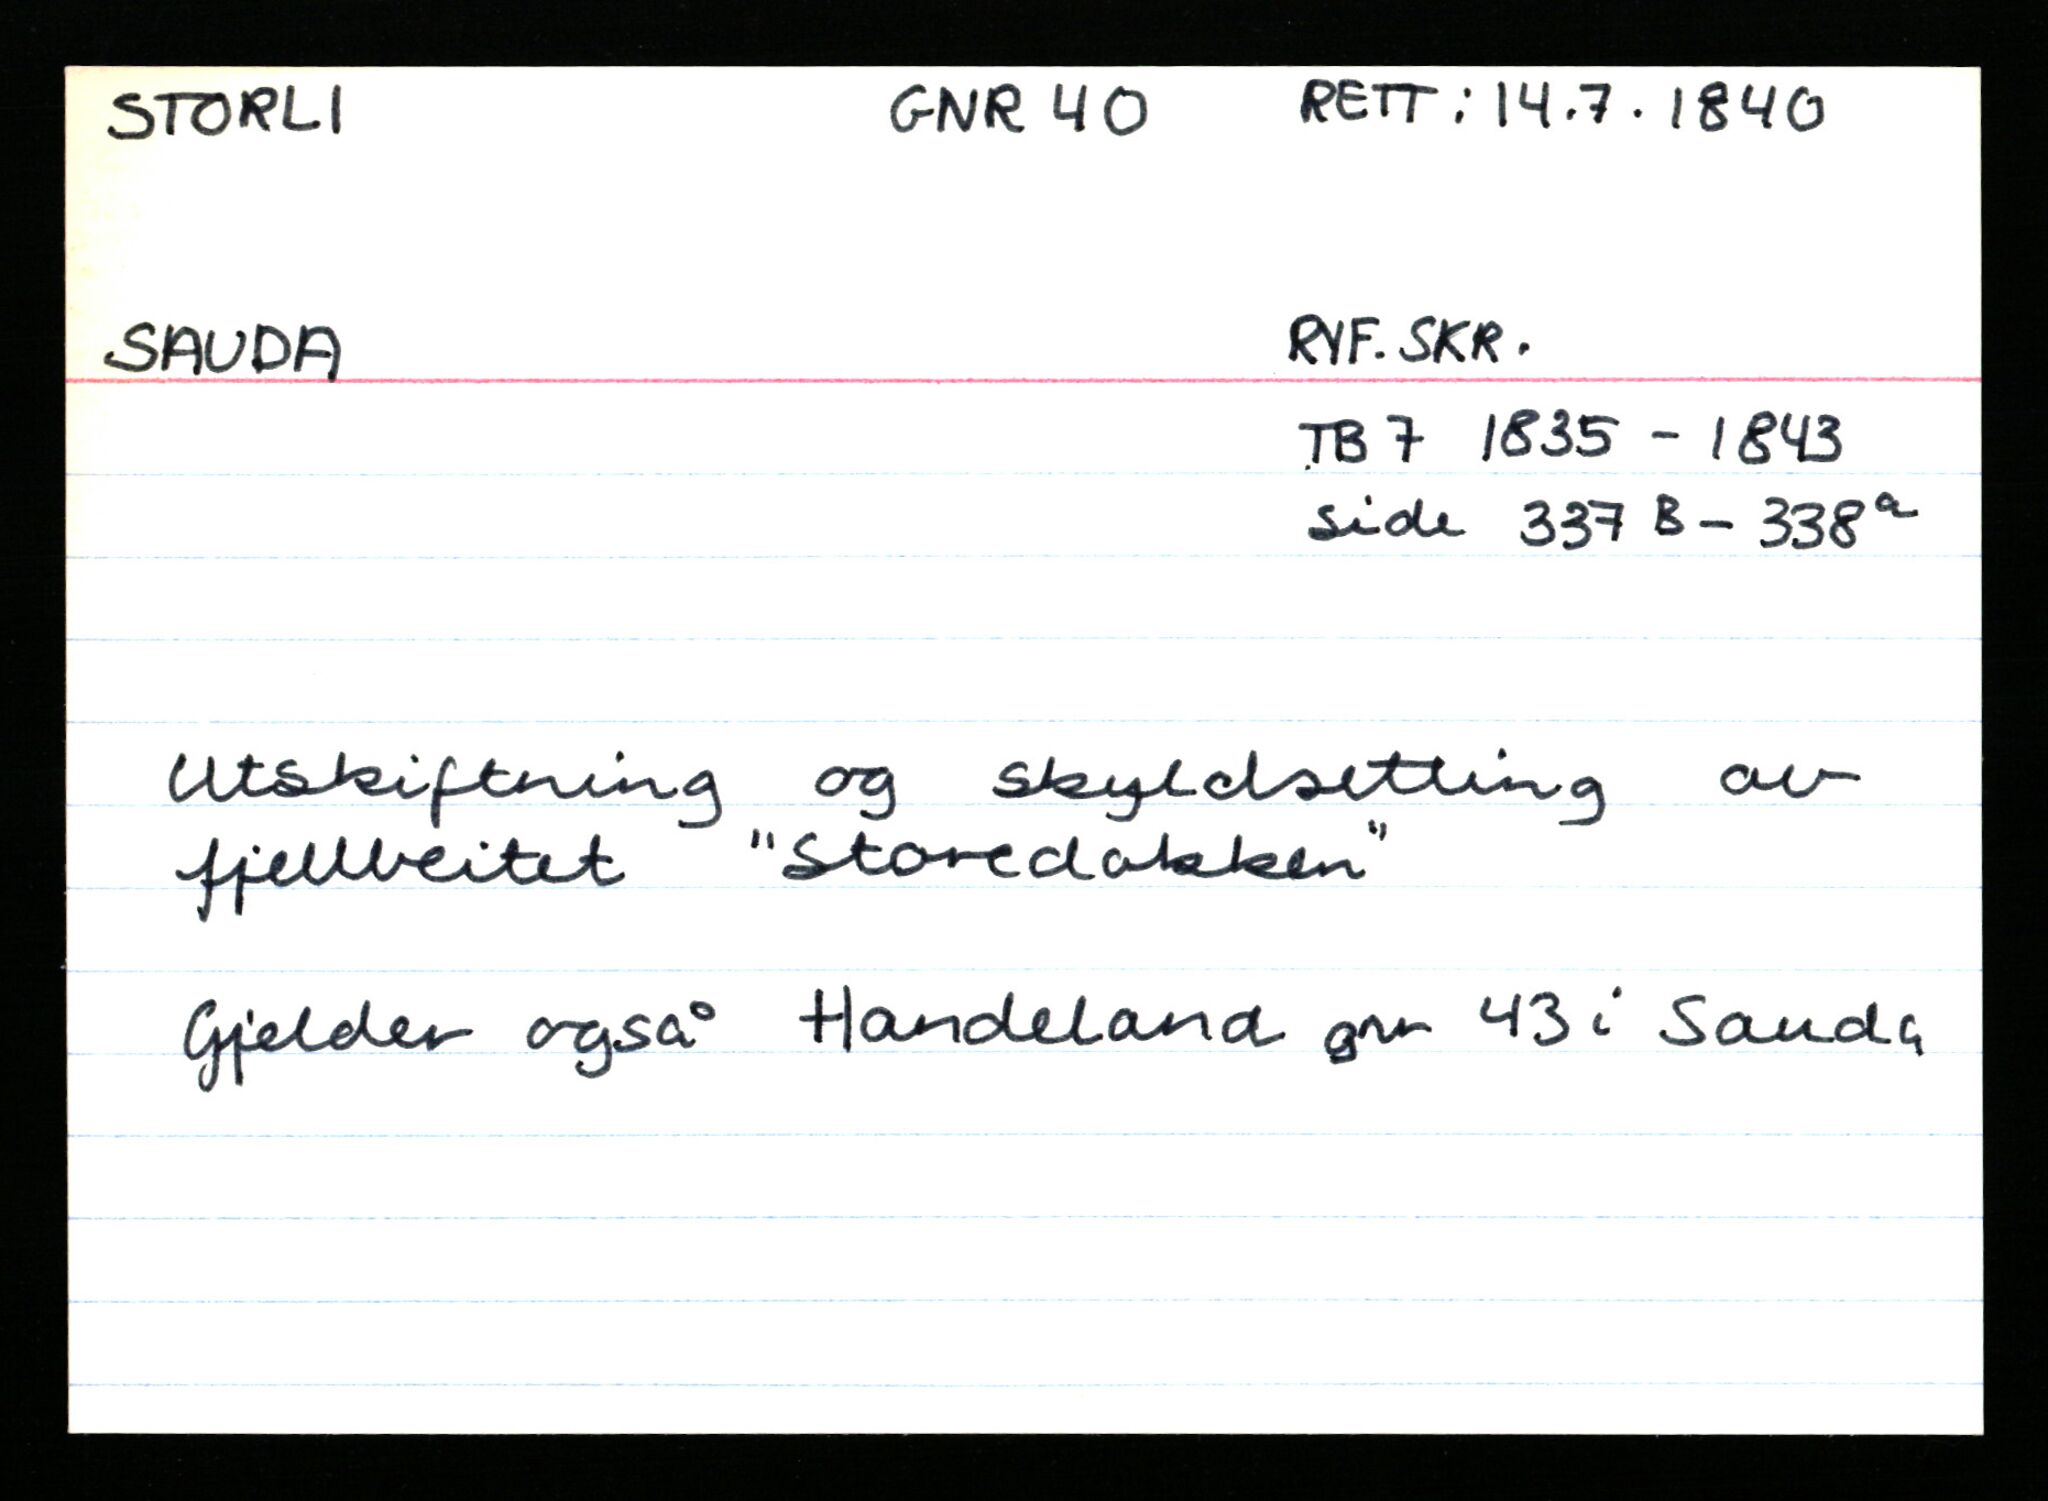 STORLI GNR 40 RETT: 14.7.1840
SAUDA RYF. SKR.
TB 7 1835 - 1843
side 337 B - 338 a
Utskiftning og skyldsetting av
fjellbeitet "Storedakken"
Gjelder også Handeland gnr 43 i Sauda